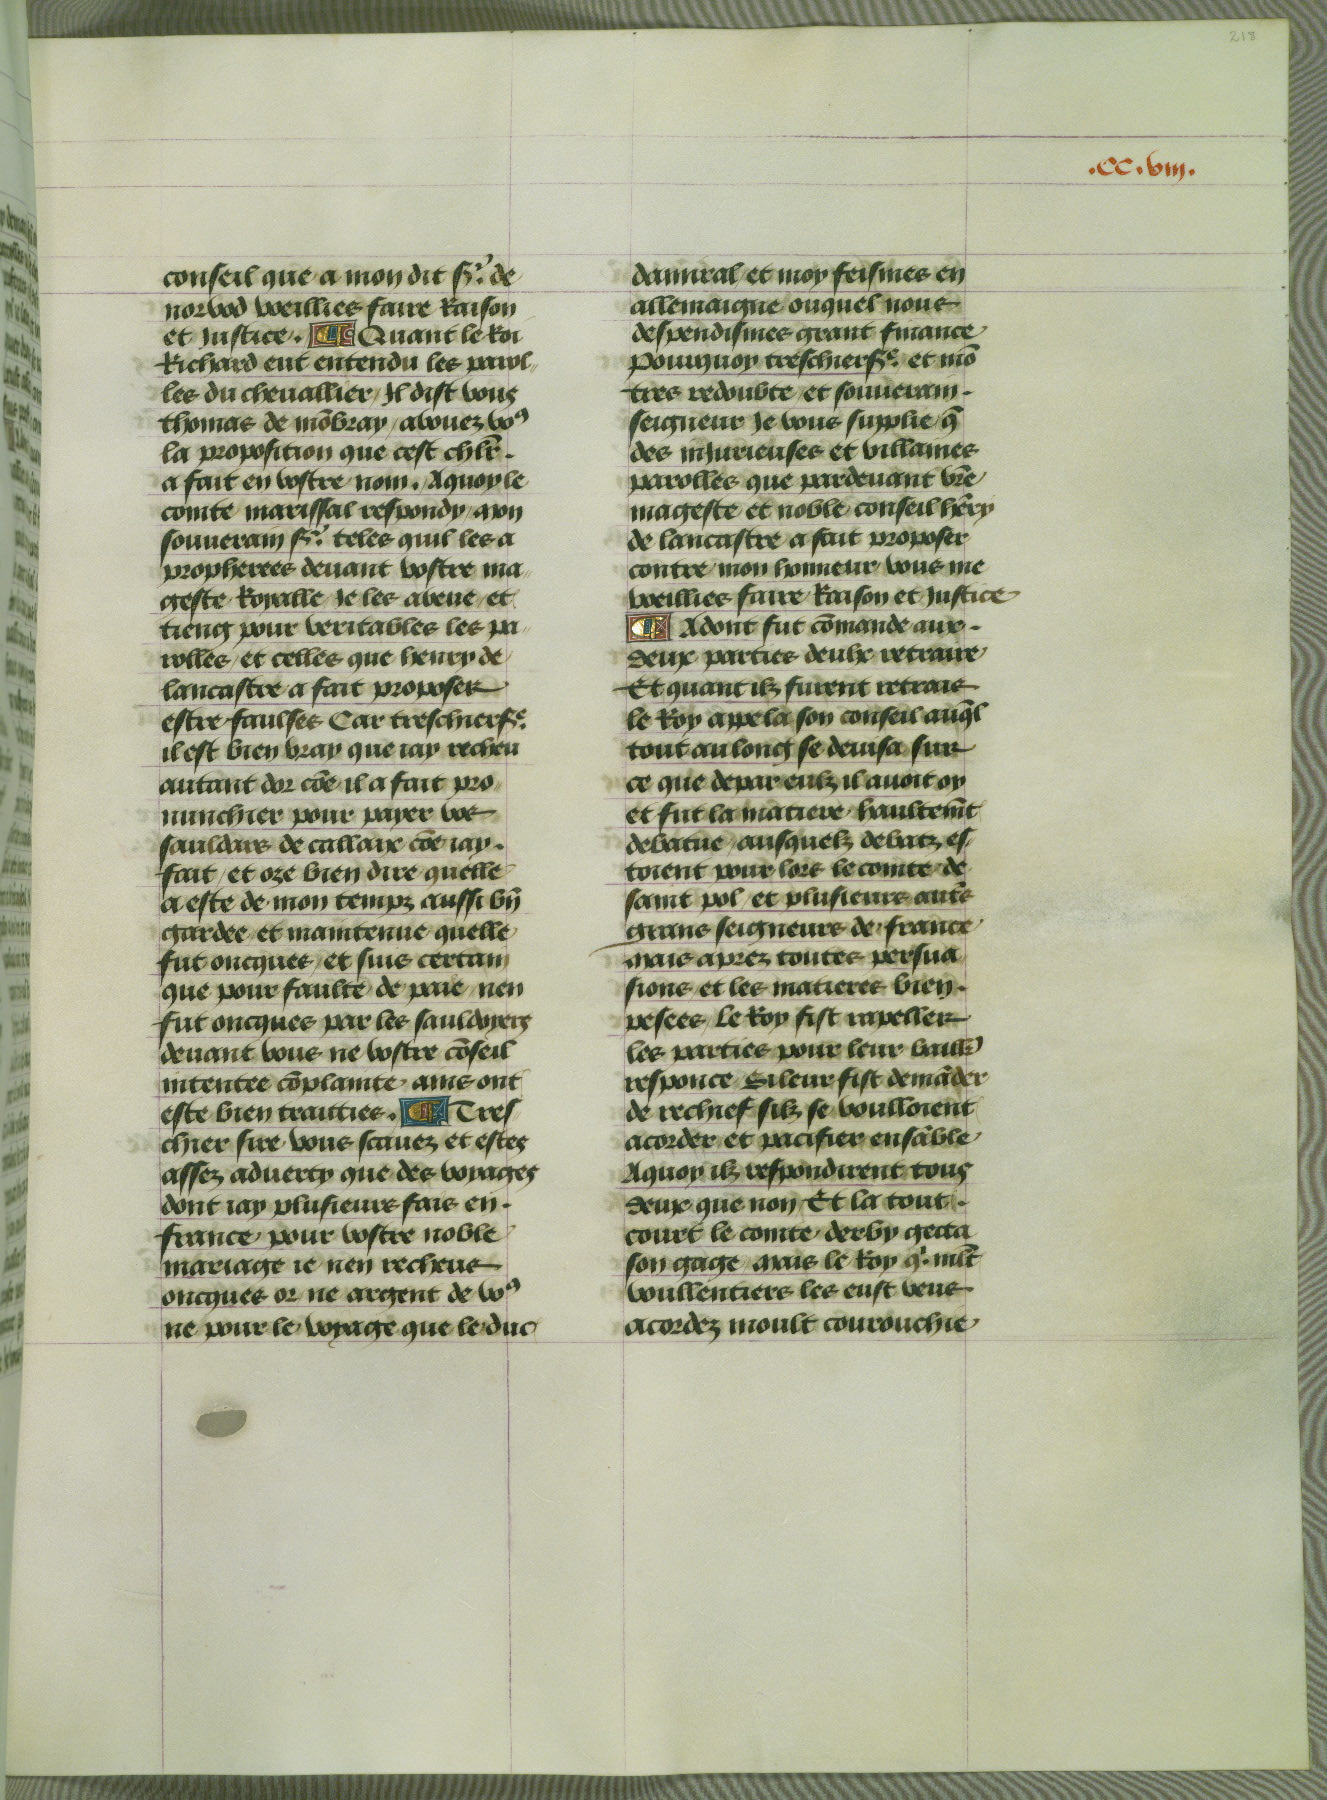 218
.CC.viij.
conseil que a mon dit sr̃. de
norvod voeillies faire Raison
et Justice. Quant le Roi
Richard eut entendu les parol
les du chevallier / Il dist vous
thomas de mõbray / avouez voꝰ
la proposition que cest chlr̃.
a fait en vostre nom. Aquoy le
comte marissal respondy / mon
souverain sr̃. teles quil les a
propherees devant vostre ma
geste Royalle Je les aveue / et
tieng pour veritables les pa
rolles / et celles que henry de
lancastre a fait proposer
estre faulses Car treschier sr̃e.
il est bien vray que iay recheu
autant dor cõe il a fait pro
nunchier pour payer vos
sauldars de callaix cõe iay.
fait / et oze bien dire quelle
a este de mon tempz aussi bñ
gardee et maintenue quelle
fut oncques / et suis certain
que pour faulte de paie nen
fut oncques par les sauldoyers
devant vous ne vostre cõseil
intentee cõplainte ains ont
este bien traitties. Tres
chier sire vous scavez et estes
assez adverty que des voyages
dont iay plusieurs fais en.
france pour vostre noble
mariage ie nen recheus
oncques or ne argent de voꝰ
ne pour le voyage que le duc
daumral et moy feismes en
allemaigne ouquel nous
despendismes grant finance
Pourquoy treschier sr̃e. et mõ
tres redoubte et souverain.
seigneur Je vous supplie / q̃
des injurieuses et villaines
parolles que pardevant vr̃e
mageste et noble conseil hẽry
de lancastre a fait proposer
contre mon honneur vous me
voeillies faire Raison et Justice
Adont fut cõmande aux.
deux parties deulx retraire
Et quant ilz furent retrais
le Roy appela son conseil auq̃l
tout au long se devisa sur
ce que de par eulz il avoit oy
et fut la matiere haultem̃t
debatue / ausquelz debatz es
toient pour lors le comte de
saint pol / et plusieurs autr̃s
grans seigneurs de france
mais aprez toutes persua
sions et les matieres bien.
pesees / Le Roy fist rapeller
les parties pour leur baillr̃
responce Si leur fist demãder
de rechief silz se voulloient
acorder et pacifier ensãble
Aquoy ilz respondirent tous
deux que non Et la tout.
court le comte derby getta
son gage mais le Roy qⁱ. mlt̃
voullentiers les eust veus
acordez moult courouchie